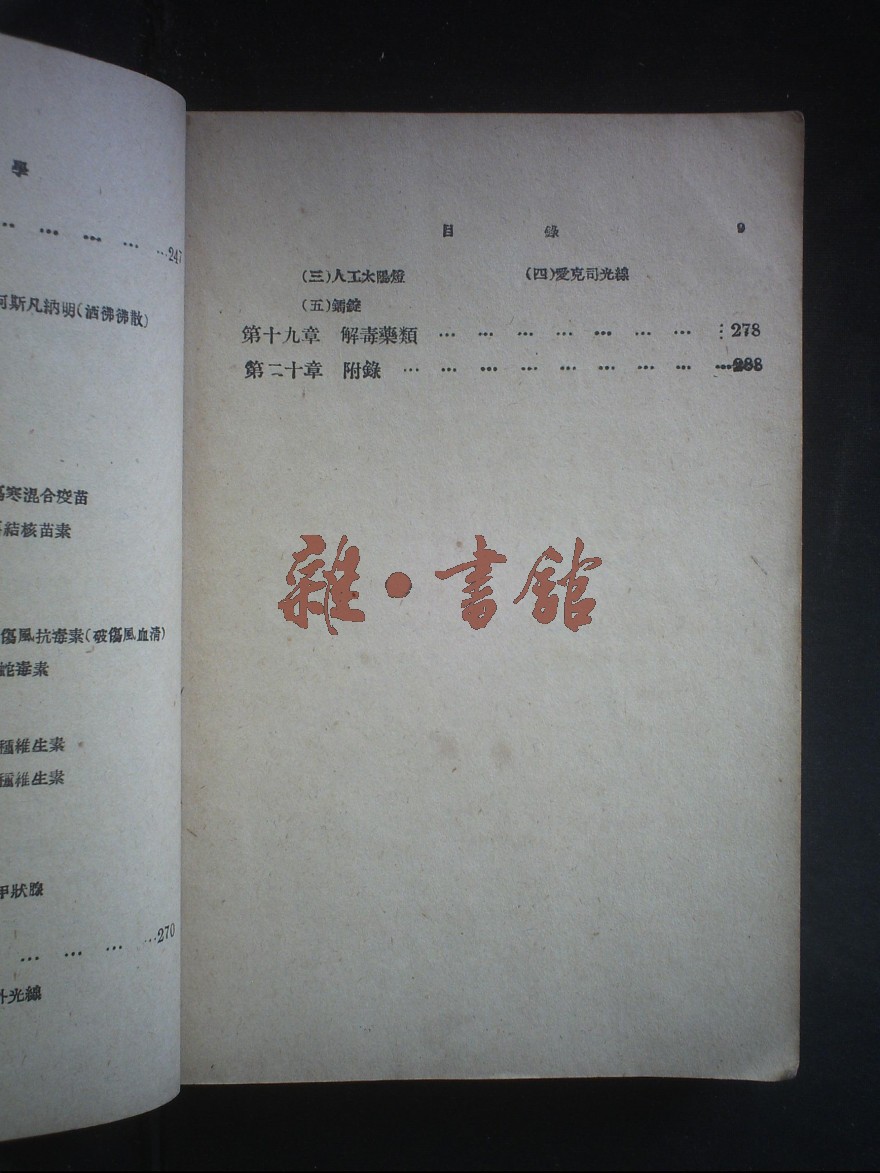 學
247
阿斯凡納明(洒彿彿散)
傷寒混合疫苗
結核苗素
傷風抗毒素(破傷風血清)
蛇毒素
種維生素
種維生素
甲狀腺
270
外光線
目 錄 9
(三)人工太陽燈 (四)愛克司光線
(五)鐳錠
第十九章 解毒藥類 … … … … … … … ⋮278
第二十章 附錄 … … … … … … … … …288
雜•書館